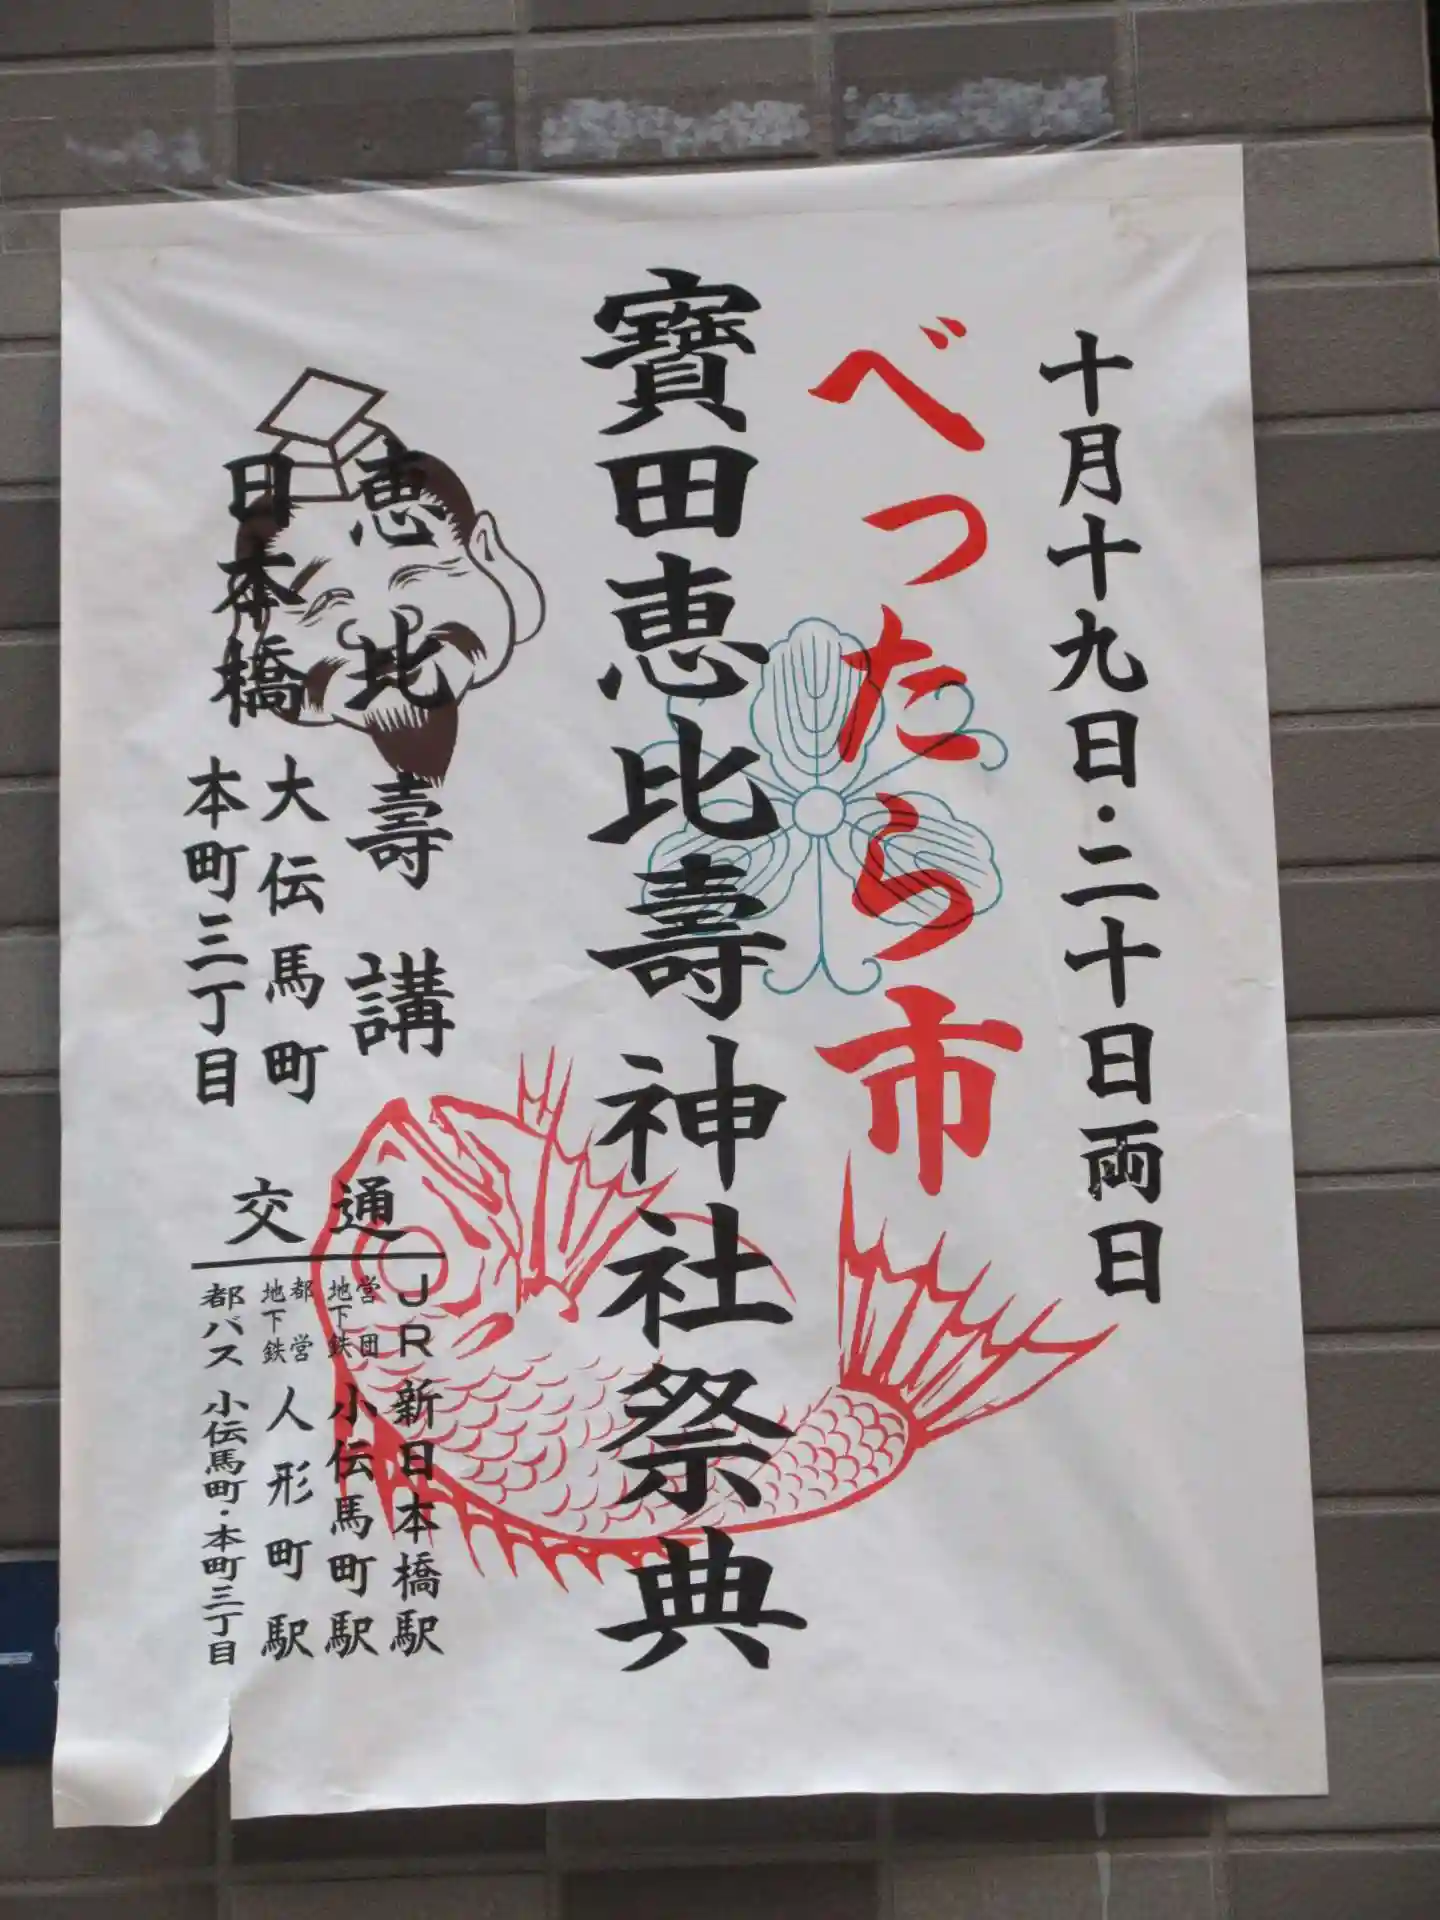 十月十九日・二十日両日
べったら市
寶田恵比壽神社祭典
恵比壽講
日本橋
大伝馬町
本町三丁目
交通
JR 新日本橋駅
営団地下鉄 小伝馬町駅
都営地下鉄 人形町駅
都バス 小伝馬町・本町三丁目